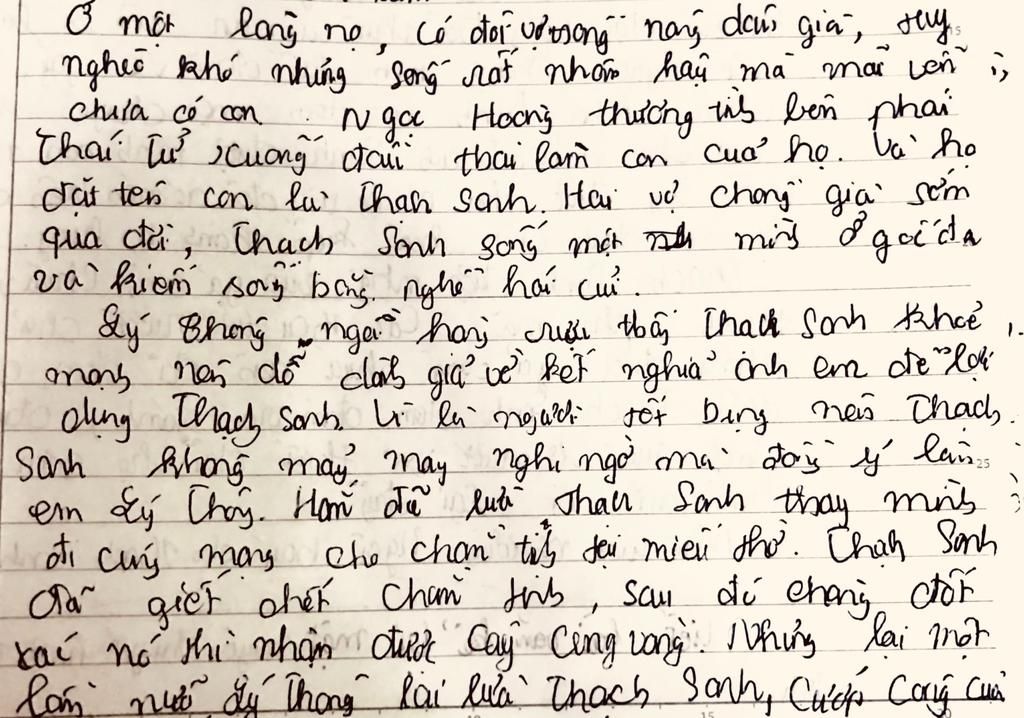 Ở một làng nọ, có đôi vợ chồng nông dân già, tuy
nghèo khó nhưng sống rất nhân hậu mà mãi vẫn
chưa có con. Ngọc Hoàng thương tình bèn phái
Thái Tử xuống đầu thai làm con của họ. Và họ
đặt tên con là Thạch Sanh. Hai vợ chồng già sớm
qua đời, Thạch Sanh sống một mình ở gốc đa
và kiếm sống bằng nghề hái củi.
Lý Thông người hàng rượu thấy Thạch Sanh khoẻ
mạnh nên dỗ dành giả vờ kết nghĩa anh em để lợi
dụng Thạch Sanh. Vì là người tốt bụng nên Thạch
Sanh không mảy may nghi ngờ mà đồng ý làm
em Lý Thông. Hắn đã lừa Thạch Sanh thay mình
đi cúng mạng cho chằn tinh tại miếu thờ. Thạch Sanh
đã giết chết chằn tinh, sau đó chàng đốt
xác nó thì nhận được cây cung vàng. Nhưng lại một
lần nữa Lý Thông lại lừa Thạch Sanh, cướp công của